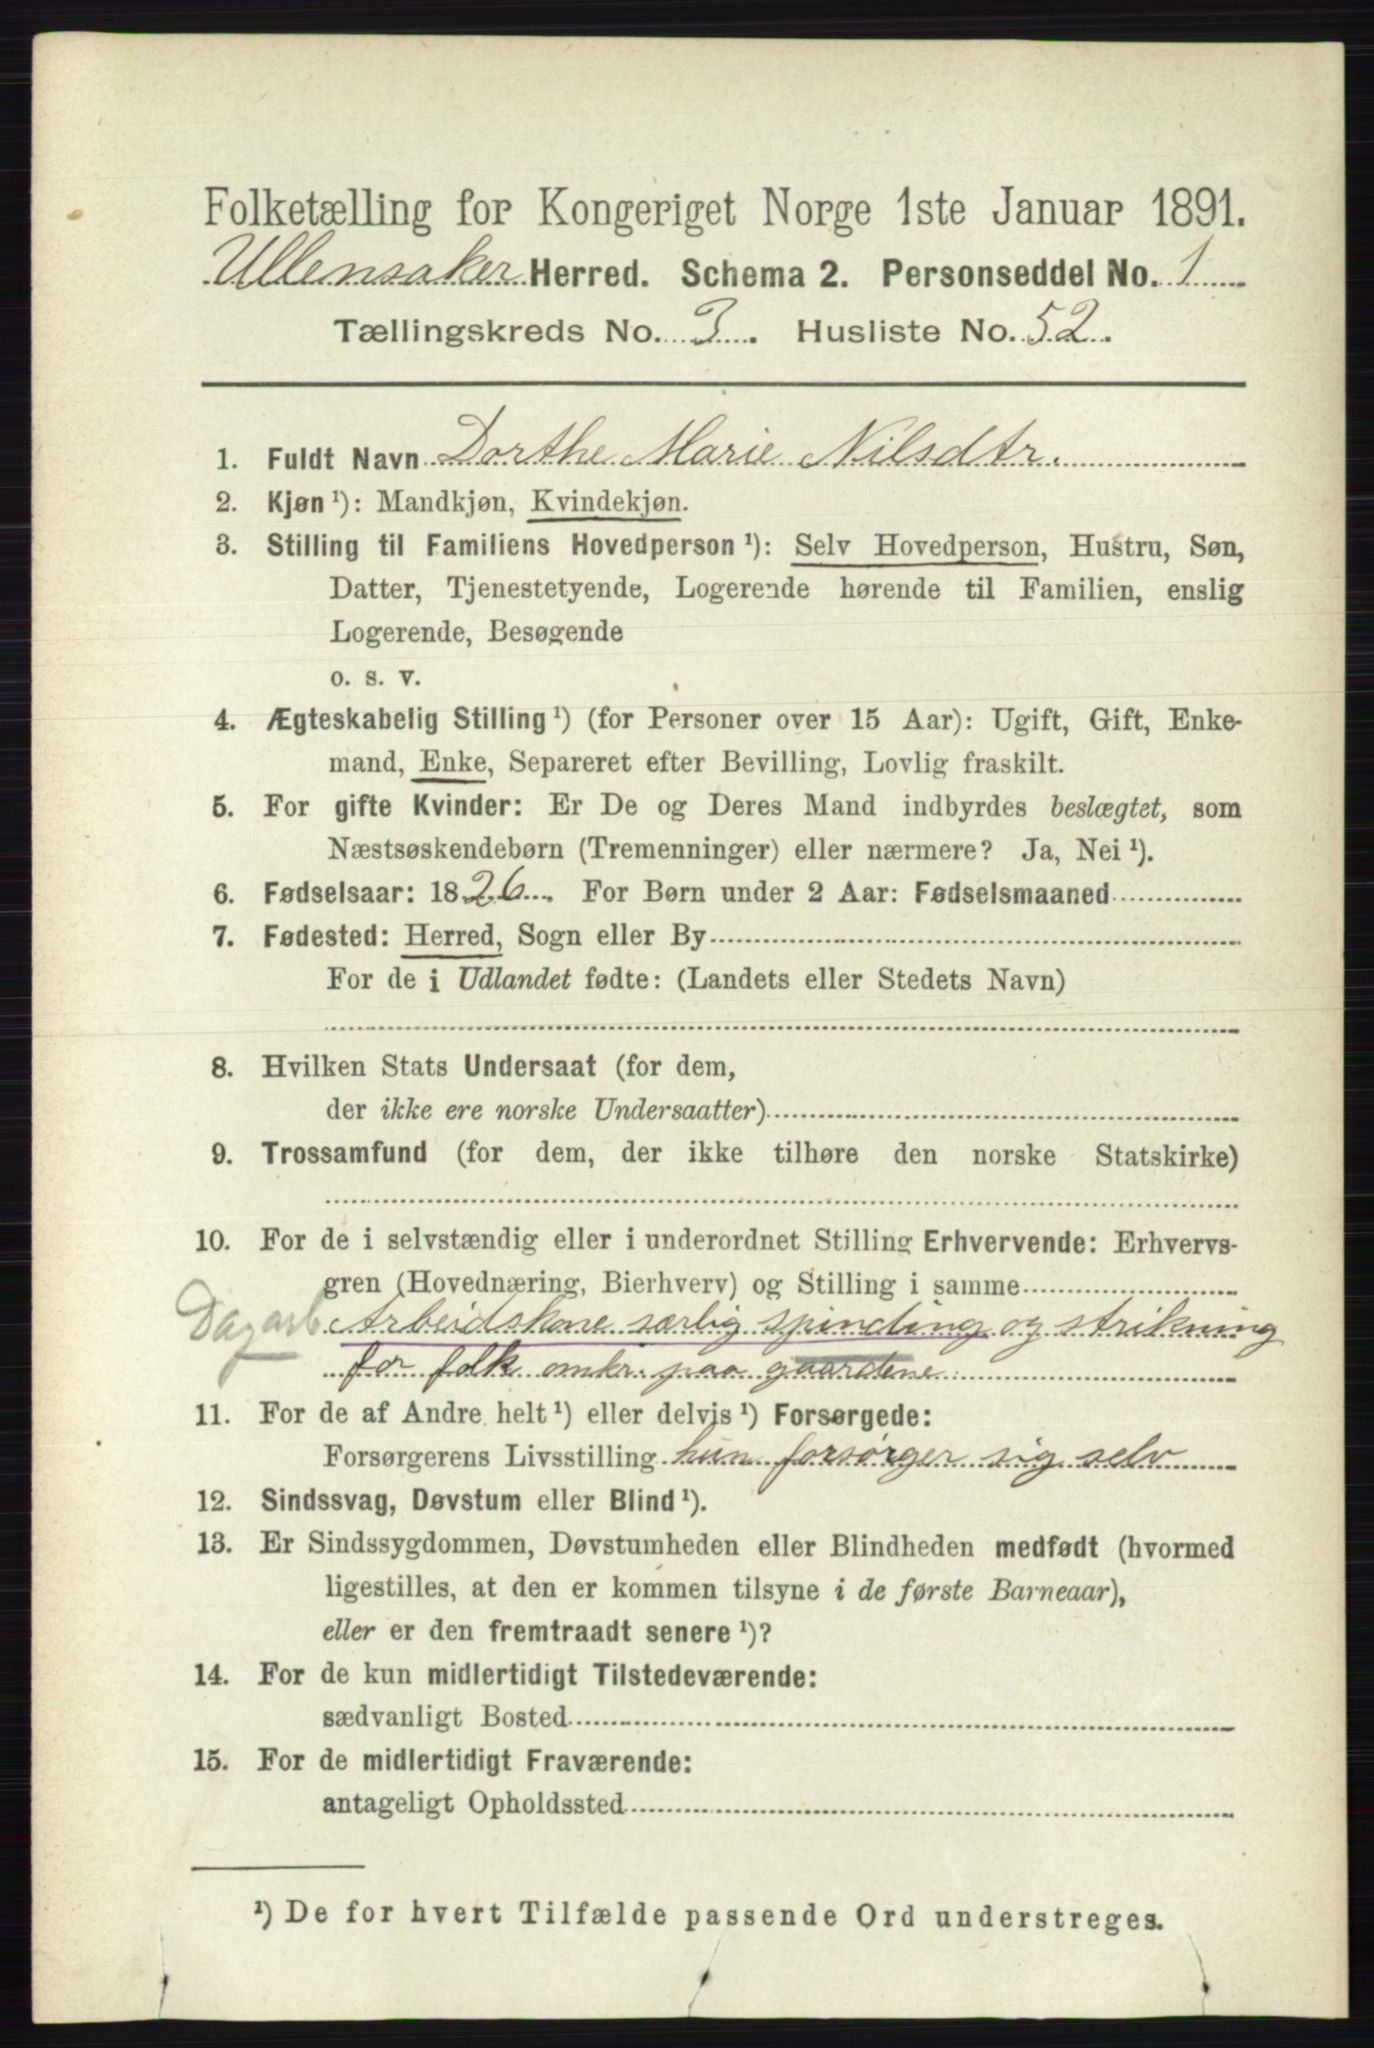 Folketælling for Kongeriget Norge 1ste Januar 1891.
Ullensaker Herred. Schema 2. Personseddel No. 1
Tællingskreds No. 3. Husliste No. 52.
1. Fuldt Navn Dorthe Marie Nilsdtr.
2. Kjøn ¹): Mandkjøn, Kvindekjøn.
3. Stilling til Familiens Hovedperson ¹): Selv Hovedperson, Hustru, Søn,
Datter, Tjenestetyende, Logerende hørende til Familien, enslig
Logerende, Besøgende
o. s. v.
4. Ægteskabelig Stilling ¹) (for Personer over 15 Aar): Ugift, Gift, Enke-
mand, Enke, Separeret efter Bevilling, Lovlig fraskilt.
5. For gifte Kvinder: Er De og Deres Mand indbyrdes beslægtet, som
Næstsøskendebørn (Tremenninger) eller nærmere? Ja, Nei ¹).
6. Fødselsaar: 1826. For Børn under 2 Aar: Fødselsmaaned
7. Fødested: Herred, Sogn eller By
For de i Udlandet fødte: (Landets eller Stedets Navn)
8. Hvilken Stats Undersaat (for dem,
der ikke ere norske Undersaatter)
9. Trossamfund (for dem, der ikke tilhøre den norske Statskirke)
10. For de i selvstændig eller i underordnet Stilling Erhvervende: Erhvervs-
gren (Hovednæring, Bierhverv) og Stilling i samme
Dagarb. Arbeidskone særlig spinding og strikning
for folk omkr. paa gaardene
11. For de af Andre helt ¹) eller delvis ¹) Forsørgede:
Forsørgerens Livsstilling hun forsørger sig selv
12. Sindssvag, Døvstum eller Blind ¹).
13. Er Sindssygdommen, Døvstumheden eller Blindheden medfødt (hvormed
ligestilles, at den er kommen tilsyne i de første Barneaar),
eller er den fremtraadt senere ¹)?
14. For de kun midlertidigt Tilstedeværende:
sædvanligt Bosted
15. For de midlertidigt Fraværende:
antageligt Opholdssted
¹) De for hvert Tilfælde passende Ord understreges.